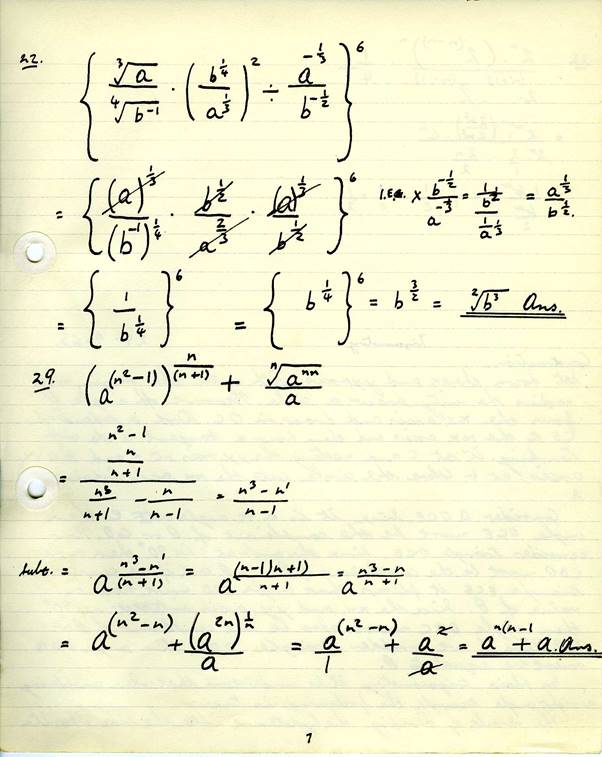 22. { ∛a / ∜b⁻¹ · (b^¼ / a^⅓)² ÷ a^-⅓ / b^-½ }⁶
= { (a)^⅓ / (b⁻¹)^¼ · b^½ / a^⅔ · (a)^⅓ / b^½ }⁶ I.E. × b^-½ / a^-⅓ = 1/b^½ / 1/a^⅓ = a^⅓ / b^½.
= { 1 / b^¼ }⁶ = { b^¼ }⁶ = b^3/2 = ²√b³ Ans.
29. (a^(n²-1))^n/(n+1) + ⁿ√a^nn / a
= n²-1 / n / n+1 / n³/n+1 - n/n-1 = n³-n' / n-1
= a^n³-n'/(n+1) = a^(n-1)n+1)/n+1 = a^n³-n/n+1
= a^(n²-n) + (a^2n)^1/n / a = a^(n²-n) / 1 + a² / a = a^n(n-1 + a. Ans.
7